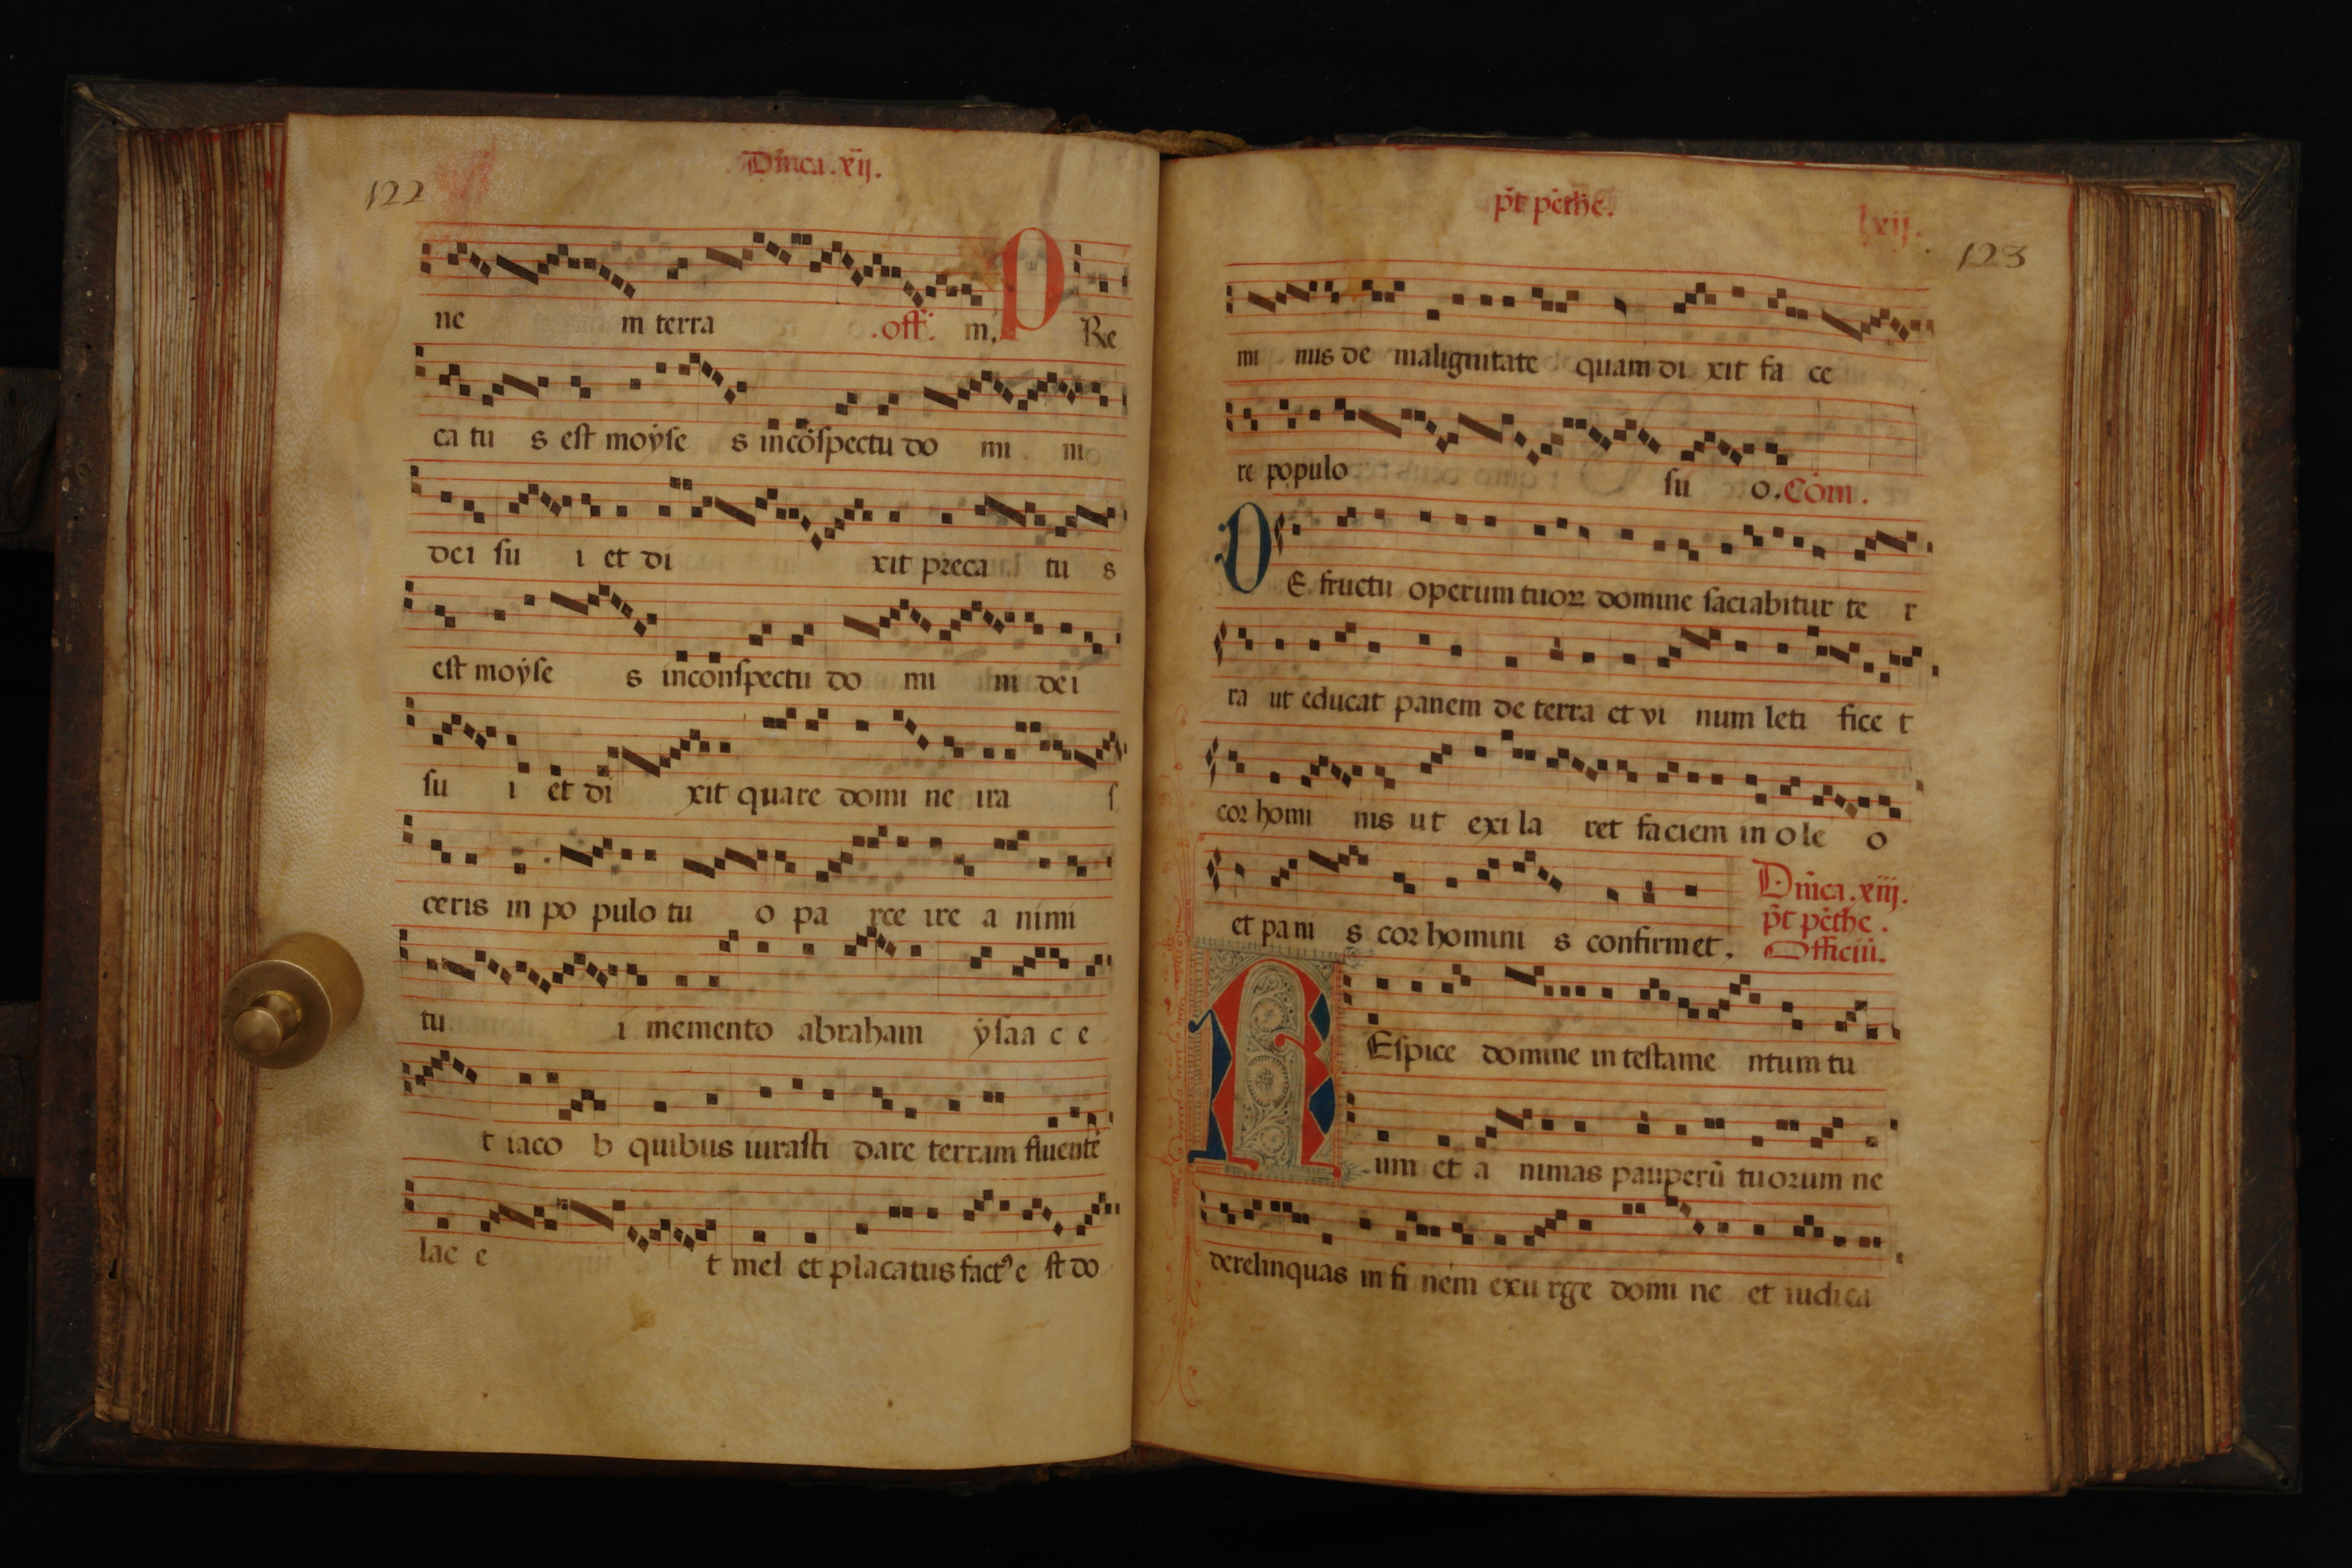 122
Dñica.xij.
ne m terra .off. m. P Re
ca tu s est moyse s incōspectu do mi ni
dei su i et di xit preca tu s
est moyse s inconspectu do mi ni dei
su i et di xit quare domi ne ira s
ceris in po pulo tu o pa rce ire a nimi
tu i memento abraham ysaa c e
t iaco b quibus iurasti dare terram fluentē
lac e t mel et placatus fact⁹ e st do
p̄t pēthē.
lxij.
123
mi nus de malignitate quam di xit fa ce
re populo su o. Cōm.
D E fructu operum tuoꝝ domine saciabitur te r
ra ut educat panem de terra et vi num leti fice t
cor homi nis ut exi la ret faciem in o le o
et pani s cor homini s confirmet.
Dñica.xiij.
p̄t pēthe.
Officiū.
R Espice domine in testame ntum tu
um et a nimas pauperū tuorum ne
derelinquas in fi nem exu rge domi ne et iudica